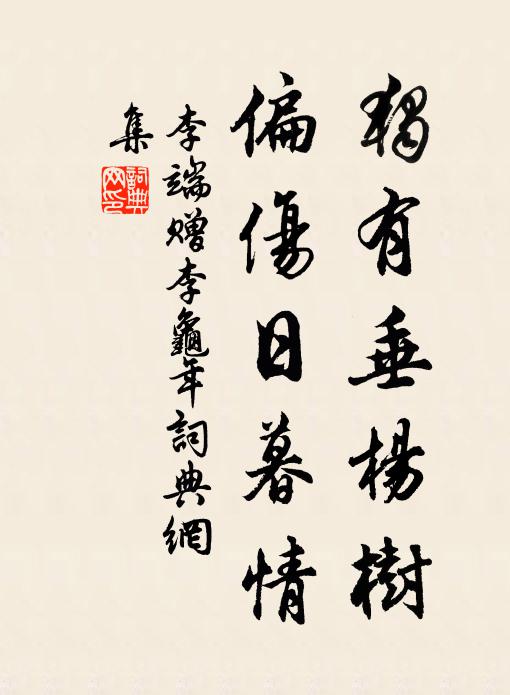 獨有垂楊樹
偏傷日暮情
李端贈李龜年詞典網
集
詞典
網印